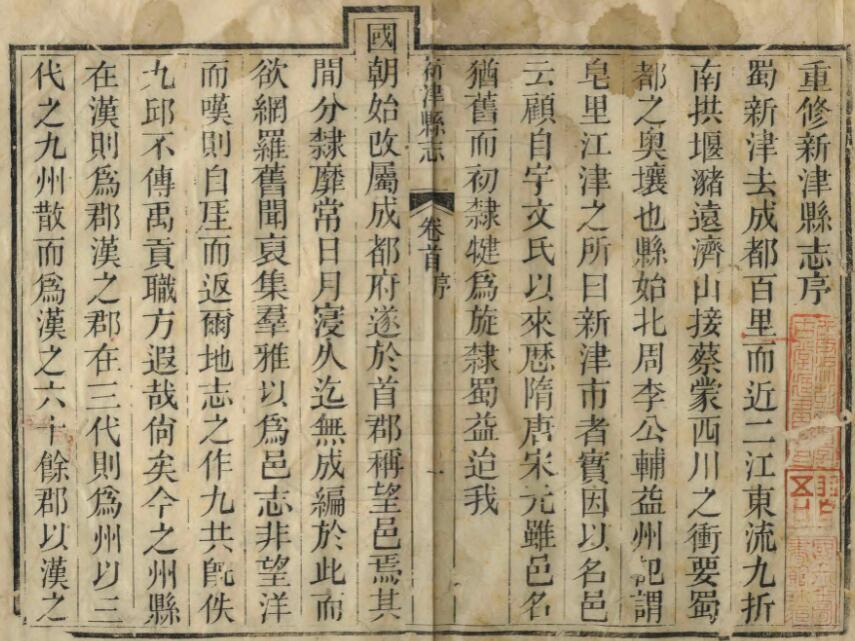 重修新津縣志序
蜀新津去成都百里而近二江東流九折
南拱堰豬遠濟山接蔡蒙西川之衝要蜀
都之奧壤也縣始北周李公輔益州記謂
皂里江津之所曰新津市者實因以名邑
云顧自宇文氏以來歷隋唐宋元雖邑名
猶舊而初隸犍爲旋隸蜀益迨我
新津縣志 卷首 序 一
國朝始改屬成都府遂於首郡稱望邑焉其
間分隸靡常日月寖久迄無成編於此而
欲網羅舊聞裒集羣雅以爲邑志非望洋
而嘆則自厓而返爾地志之作九共旣佚
九邱不傳禹貢職方遐哉尙矣今之州縣
在漢則爲郡漢之郡在三代則爲州以三
代之九州散而爲漢之六十餘郡以漢之